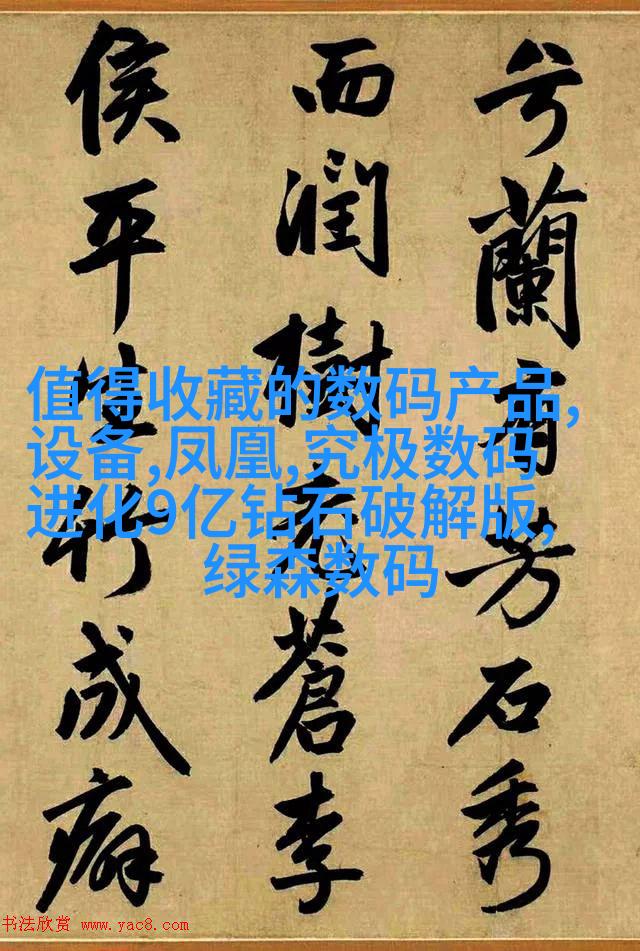 兮蘭有芳石秀
而潤樹老蒼李
侯平生竹成癖
值得收藏的数码产品,
设备,凤凰,究极数码
进化9亿钻石破解版,
绿森数码
书法欣赏 www.yac8.com